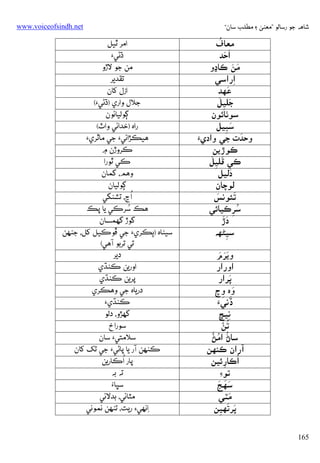 www.voiceofsindh.net
شاهہ جو رسالو "معنيٰ ۽ مطلب سان"
معاف امر ٿيل
اَحَد ڌڻيءَ
مَنَ ڪاڍو من جو لاڙو
اِراسي تقدير
عَهد ازل کان
جَليل جلال واري (ڌڻيءَ)
سوناٽون ڳولياٽون
سَبيل راهه (خدائي واٽ)
وحدت جي واديءَ هيڪڙائيءَ جي ماٿريءَ
ڪوڙين ڪروڙن ۾
ڪي قَليل ڪي ٿورا
دَليل وهم، گمان
لوچان ڳوليان
تنُوئنس اُڃ، تشنگي
سُرڪيائي هڪ سُرڪي يا ڍڪ
دَڙَ کوڙ گهمسان
سيٽهه سيناهه (پڪريءَ جي ڦوڪيل کل، جنهن تي تربو آهي)
وِيَرَمَ دير
اورار اورين ڪنڌي
پَرار پرين ڪنڌي
وَهہ وِچ درياهه جي وهڪري
ڌُنيءَ ڪنڌيءَ
نِيڃُ کهڙو، دلو
ٽُنُ سوراخ
سانُ اَمُنُ سلامتيءَ سان
آران ڪنهن ڪنهن آر يا پاڻيءَ جي تک کان
اُڪارئين پار اُڪارين
توءِ تہ بہ
سَهَڄَ سڀاءَ
مَٽي مٽائي، بدلائي
پَرِتَهين اِنهيءَ ريت، تنهن نموني
165